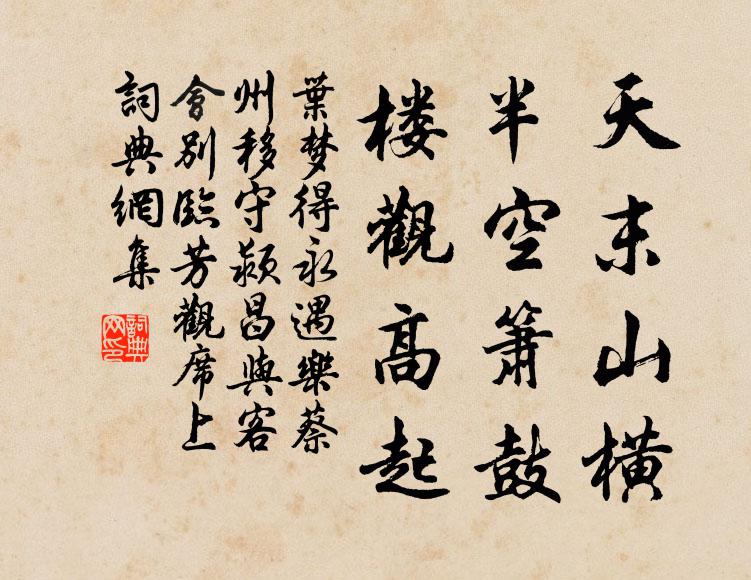 天末山橫
半空簫鼓
楼觀高起
葉梦得永遇樂蔡
州移守潁昌與客
會別臨芳觀席上
詞典網集
詞典
网印